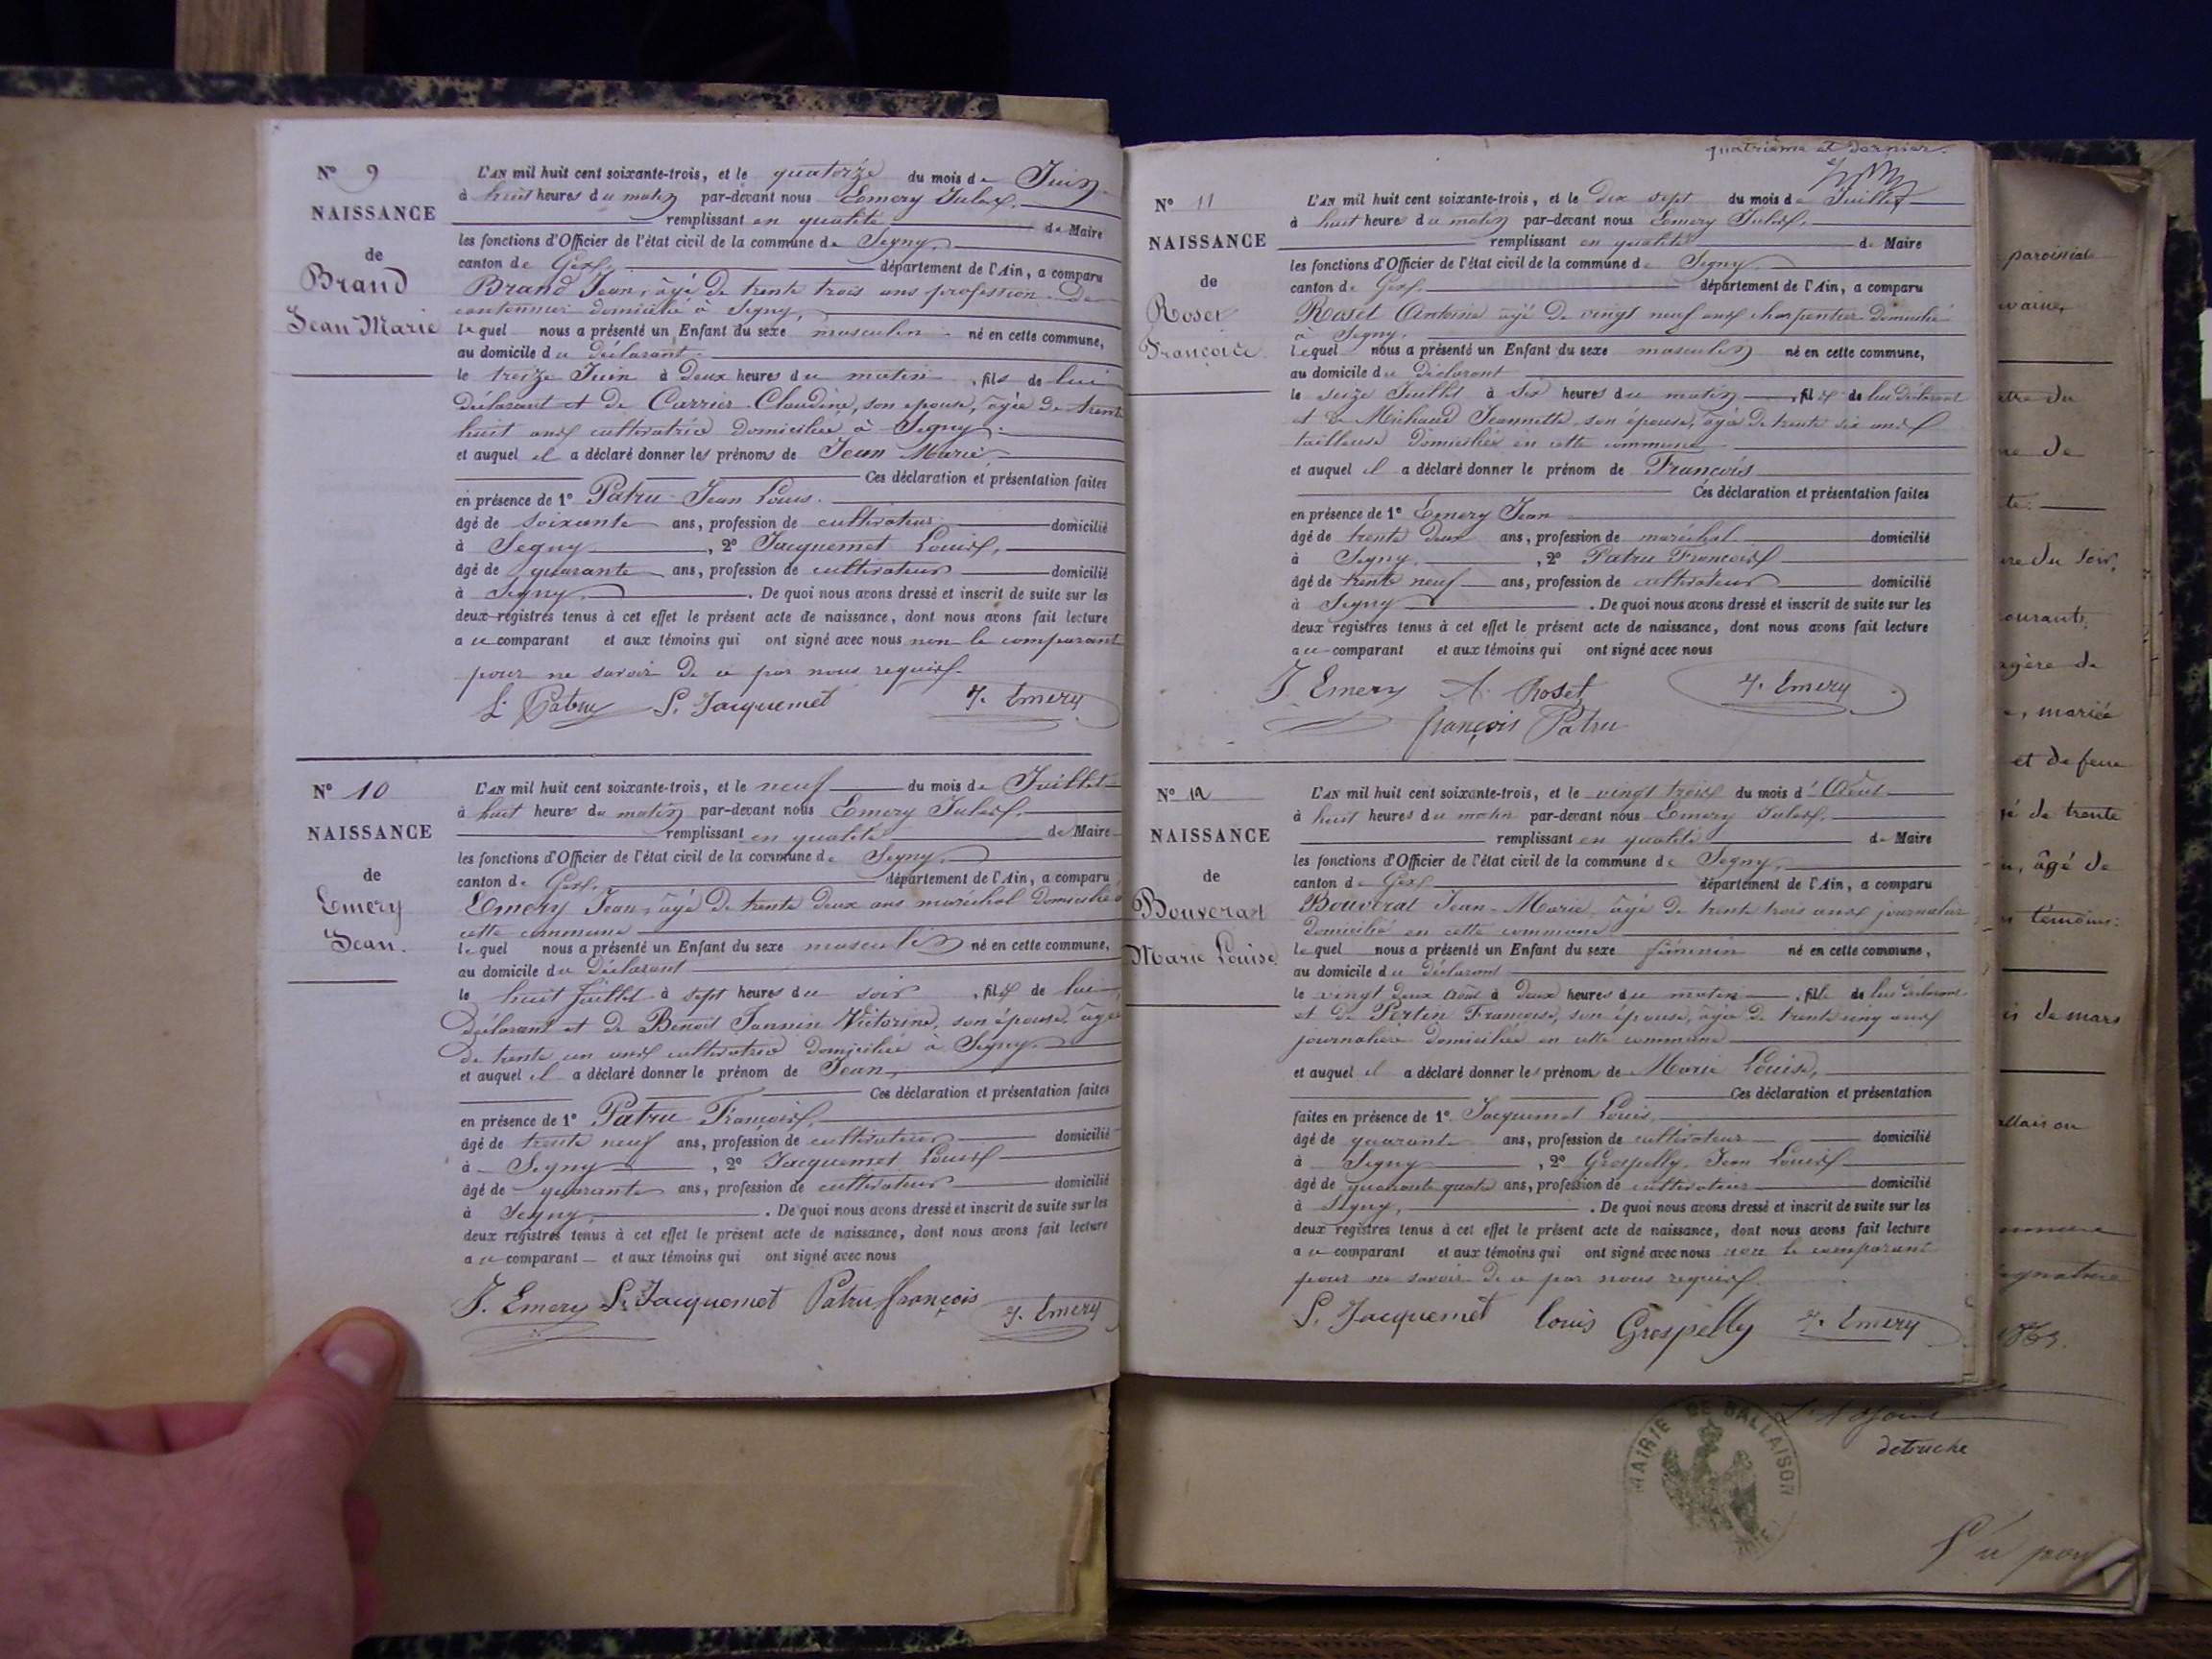 Nº 9
NAISSANCE
de
Brand
Jean Marie
L'AN mil huit cent soixante-trois, et le quatorze du mois de Juin
à huit heures du matin par-devant nous Emery Jules
remplissant en qualité de Maire
les fonctions d'Officier de l'état civil de la commune de Segny
canton de Gex département de l'Ain, a comparu
Brand Jean, âgé de trente trois ans profession de
cantonnier domicilié à Segny,
lequel nous a présenté un Enfant du sexe masculin né en cette commune,
au domicile du déclarant
le treize Juin à deux heures du matin, fils de lui
déclarant et de Carrier Claudine, son épouse, âgée de trente
huit ans cultivatrice domiciliée à Segny
et auquel il a déclaré donner les prénoms de Jean Marie
Ces déclaration et présentation faites
en présence de 1º Patru Jean Louis.
âgé de soixante ans, profession de cultivateur domicilié
à Segny, 2º Jacquemet Louis,
âgé de quarante ans, profession de cultivateur domicilié
à Segny. De quoi nous avons dressé et inscrit de suite sur les
deux registres tenus à cet effet le présent acte de naissance, dont nous avons fait lecture
au comparant et aux témoins qui ont signé avec nous non le comparant
pour ne savoir de ce par nous requis.
L. Patru L. Jacquemet J. Emery
Nº 10
NAISSANCE
de
Emery
Jean.
L'AN mil huit cent soixante-trois, et le neuf du mois de Juillet
à huit heures du matin par-devant nous Emery Jules
remplissant en qualité de Maire
les fonctions d'Officier de l'état civil de la commune de Segny
canton de Gex. département de l'Ain, a comparu
Emery Jean, âgé de trente deux ans maréchal domicilié
cette commune
lequel nous a présenté un Enfant du sexe masculin né en cette commune,
au domicile du déclarant
le huit Juillet à sept heures du soir, fils de lui
déclarant et de Benoit Jannin Victorine, son épouse, âgée
de trente un ans cultivatrice domiciliée à Segny.
et auquel il a déclaré donner le prénom de Jean
Ces déclaration et présentation faites
en présence de 1º Patru François,
âgé de trente neuf ans, profession de cultivateur domicilié
à Segny, 2º Jacquemet Louis
âgé de quarante ans, profession de cultivateur domicilié
à Segny. De quoi nous avons dressé et inscrit de suite sur les
deux registres tenus à cet effet le présent acte de naissance, dont nous avons fait lecture
au comparant et aux témoins qui ont signé avec nous
J. Emery L. Jacquemet Patru françois J. Emery
quatrième et dernier.
Nº 11
NAISSANCE
de
Roset
François
L'AN mil huit cent soixante-trois, et le dix sept du mois de Juillet
à huit heures du matin par-devant nous Emery Jules,
remplissant en qualité de Maire
les fonctions d'Officier de l'état civil de la commune de Segny
canton de Gex. département de l'Ain, a comparu
Roset Antoine âgé de vingt neuf ans charpentier domicilié
à Segny,
lequel nous a présenté un Enfant du sexe masculin né en cette commune,
au domicile du déclarant
le seize Juillet à six heures du matin, fils de lui déclarant
et de Michaud Jeannette, son épouse, âgée de trente six ans
tailleuse domiciliée en cette commune
et auquel il a déclaré donner le prénom de François
Ces déclaration et présentation faites
en présence de 1º Emery Jean
âgé de trente deux ans, profession de maréchal domicilié
à Segny, 2º Patru François
âgé de trente neuf ans, profession de cultivateur domicilié
à Segny. De quoi nous avons dressé et inscrit de suite sur les
deux registres tenus à cet effet le présent acte de naissance, dont nous avons fait lecture
au comparant et aux témoins qui ont signé avec nous
J. Emery A. Roset J. Emery
françois Patru
Nº 12
NAISSANCE
de
Bouverat
Marie Louise
L'AN mil huit cent soixante-trois, et le vingt trois du mois d'Août
à huit heures du matin par-devant nous Emery Jules.
remplissant en qualité de Maire
les fonctions d'Officier de l'état civil de la commune de Segny
canton de Gex département de l'Ain, a comparu
Bouverat Jean-Marie, âgé de trente trois ans journalier
domicilié en cette commune
lequel nous a présenté un Enfant du sexe féminin né en cette commune,
au domicile du déclarant
le vingt deux Août à deux heures du matin, fille de lui déclarant
et de Pertin Françoise, son épouse, âgée de trente ung ans
journalière domiciliée en cette commune
et auquel il a déclaré donner les prénom de Marie Louise,
Ces déclaration et présentation
faites en présence de 1º Jacquemet Louis
âgé de quarante ans, profession de cultivateur domicilié
à Segny, 2º Grospelly Jean Louis
âgé de quarante quatre ans, profession de cultivateur domicilié
à Segny. De quoi nous avons dressé et inscrit de suite sur les
deux registres tenus à cet effet le présent acte de naissance, dont nous avons fait lecture
au comparant et aux témoins qui ont signé avec nous non le comparant
pour ne savoir de ce par nous requis.
L. Jacquemet louis Grospelly J. Emery
paroissiale
de
ourante
, mariée
et de feue
de trente
, âgé de
témoins:
de mars
MAIRIE DE BALLAISON
detruche